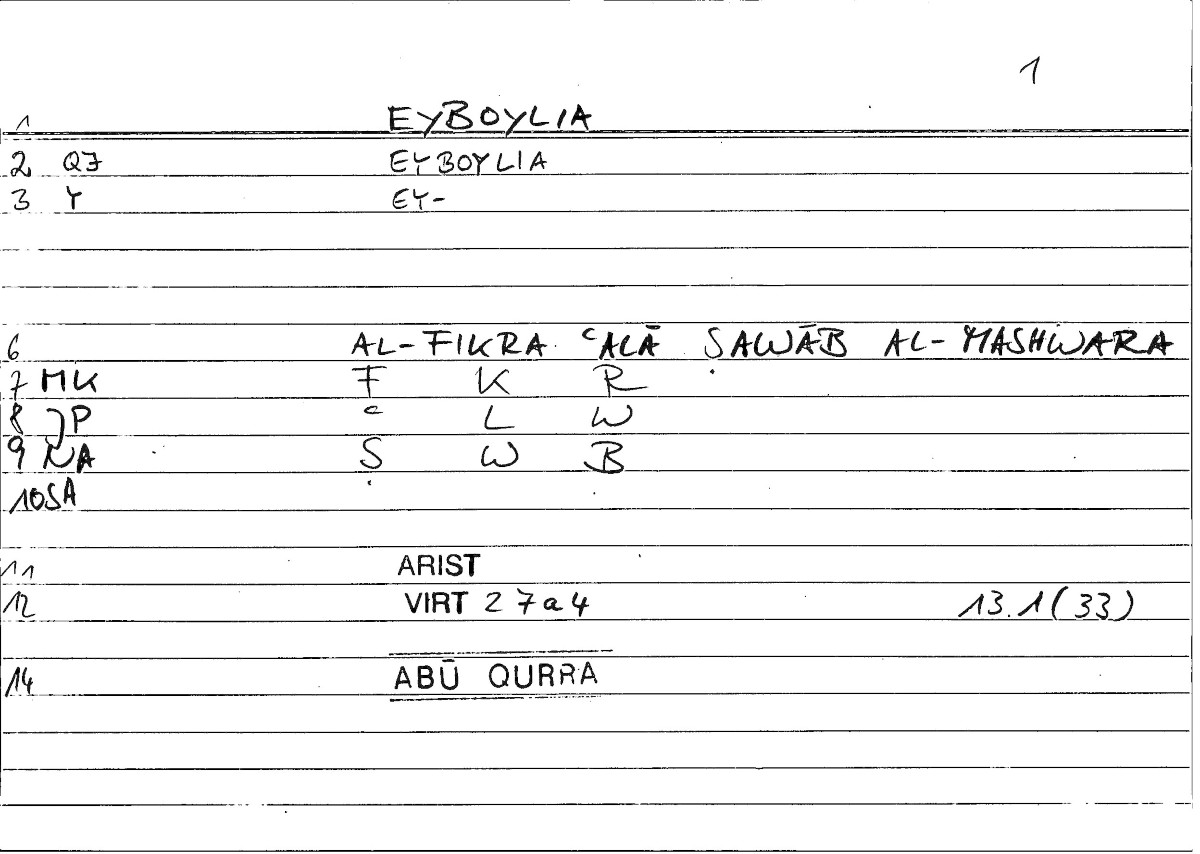 1
1 EYBOYLIA
2 QJ EYBOYLIA
3 Y EY-
6 AL-FIKRA ʿALĀ ṢAWĀB AL-MASHWARA
7 MK F K R
8 JP ʿ L W
9 NA Ṣ W B
10 SA
11 ARIST
12 VIRT 2 7a4 13.1(33)
14 ABŪ QURRA